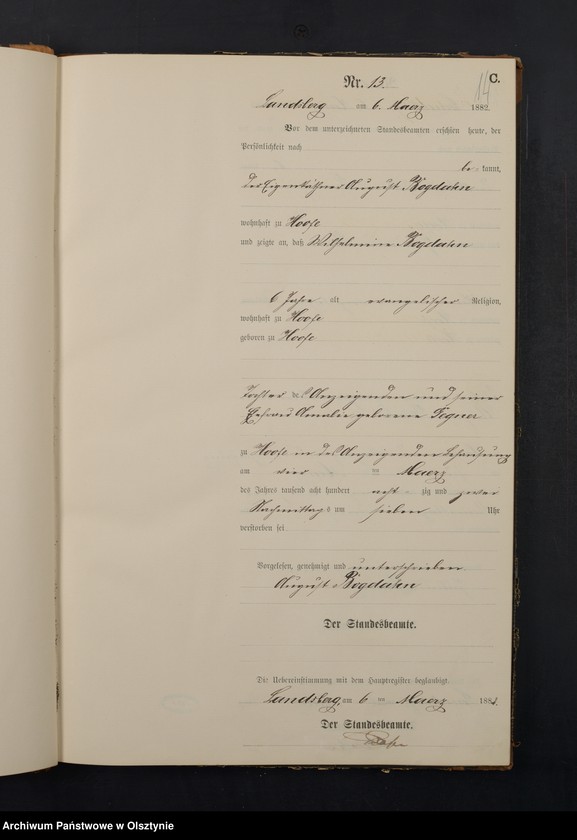 14 C.
Nr. 13.
Landsberg am 6. Maerz 1882.
Vor dem unterzeichneten Standesbeamten erschien heute, der
Persönlichkeit nach
be- kannt,
der Eigenkäthner August Bogdahn
wohnhaft zu Hoofe
und zeigte an, daß Wilhelmine Bogdahn
6 Jahre alt evangelischer Religion,
wohnhaft zu Hoofe
geboren zu Hoofe
Tochter des Anzeigenden und seiner
Ehefrau Amalie geborene Tegner
zu Hoofe in des Anzeigenden Behausung
am vier ten Maerz
des Jahres tausend acht hundert acht- zig und zwei
Nachmittags um sieben Uhr
verstorben sei
Vorgelesen, genehmigt und unterschrieben.
August Bogdahn
Der Standesbeamte.
Die Uebereinstimmung mit dem Hauptregister beglaubigt.
Landsberg, am 6 ten Maerz 1882.
Der Standesbeamte.
Archiwum Państwowe w Olsztynie